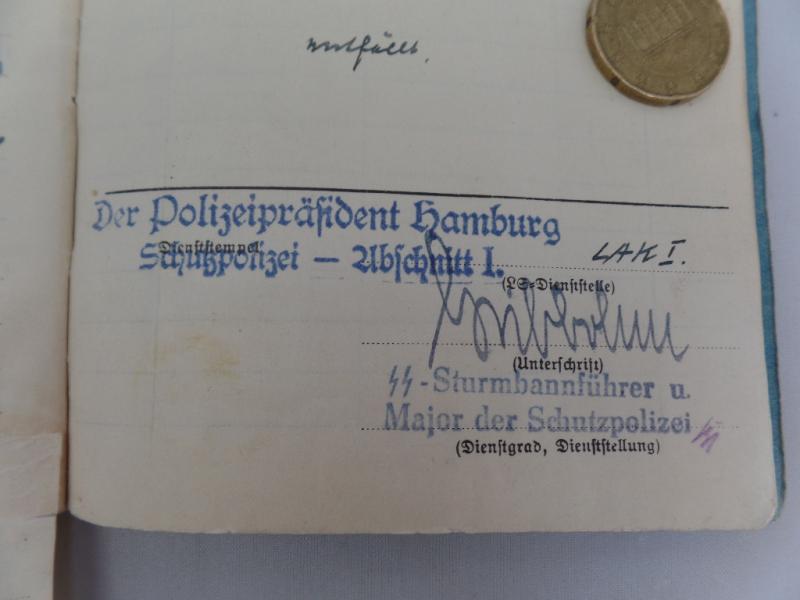 entfällt.
Der Polizeipräsident Hamburg
Dienststempel
Schutzpolizei — Abschnitt I.
LAK I.
(LS=Dienststelle)
(Unterschrift)
SS-Sturmbannführer u.
Major der Schutzpolizei
(Dienstgrad, Dienststellung)